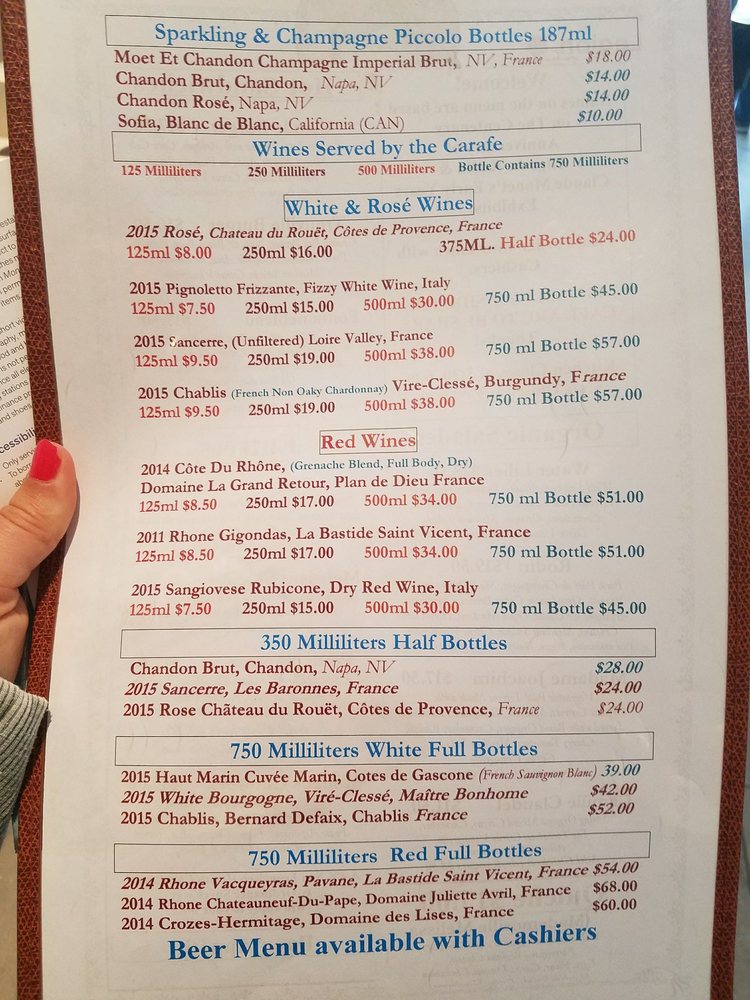 Sparkling & Champagne Piccolo Bottles 187ml
Moet Et Chandon Champagne Imperial Brut, NV, France $18.00
Chandon Brut, Chandon, Napa, NV $14.00
Chandon Rosé, Napa, NV $14.00
Sofia, Blanc de Blanc, California (CAN) $10.00
Wines Served by the Carafe
125 Milliliters 250 Milliliters 500 Milliliters Bottle Contains 750 Milliliters
White & Rosé Wines
2015 Rosé, Chateau du Rouët, Côtes de Provence, France
125ml $8.00 250ml $16.00 375ML. Half Bottle $24.00
2015 Pignoletto Frizzante, Fizzy White Wine, Italy
125ml $7.50 250ml $15.00 500ml $30.00 750 ml Bottle $45.00
2015 Sancerre, (Unfiltered) Loire Valley, France
125ml $9.50 250ml $19.00 500ml $38.00 750 ml Bottle $57.00
2015 Chablis (French Non Oaky Chardonnay) Vire-Clessé, Burgundy, France
125ml $9.50 250ml $19.00 500ml $38.00 750 ml Bottle $57.00
Red Wines
2014 Côte Du Rhône, (Grenache Blend, Full Body, Dry)
Domaine La Grand Retour, Plan de Dieu France
125ml $8.50 250ml $17.00 500ml $34.00 750 ml Bottle $51.00
2011 Rhone Gigondas, La Bastide Saint Vicent, France
125ml $8.50 250ml $17.00 500ml $34.00 750 ml Bottle $51.00
2015 Sangiovese Rubicone, Dry Red Wine, Italy
125ml $7.50 250ml $15.00 500ml $30.00 750 ml Bottle $45.00
350 Milliliters Half Bottles
Chandon Brut, Chandon, Napa, NV $28.00
2015 Sancerre, Les Baronnes, France $24.00
2015 Rose Chãteau du Rouët, Côtes de Provence, France $24.00
750 Milliliters White Full Bottles
2015 Haut Marin Cuvée Marin, Cotes de Gascone (French Sauvignon Blanc) 39.00
2015 White Bourgogne, Viré-Clessé, Maître Bonhome $42.00
2015 Chablis, Bernard Defaix, Chablis France $52.00
750 Milliliters Red Full Bottles
2014 Rhone Vacqueyras, Pavane, La Bastide Saint Vicent, France $54.00
2014 Rhone Chateauneuf-Du-Pape, Domaine Juliette Avril, France $68.00
2014 Crozes-Hermitage, Domaine des Lises, France $60.00
Beer Menu available with Cashiers